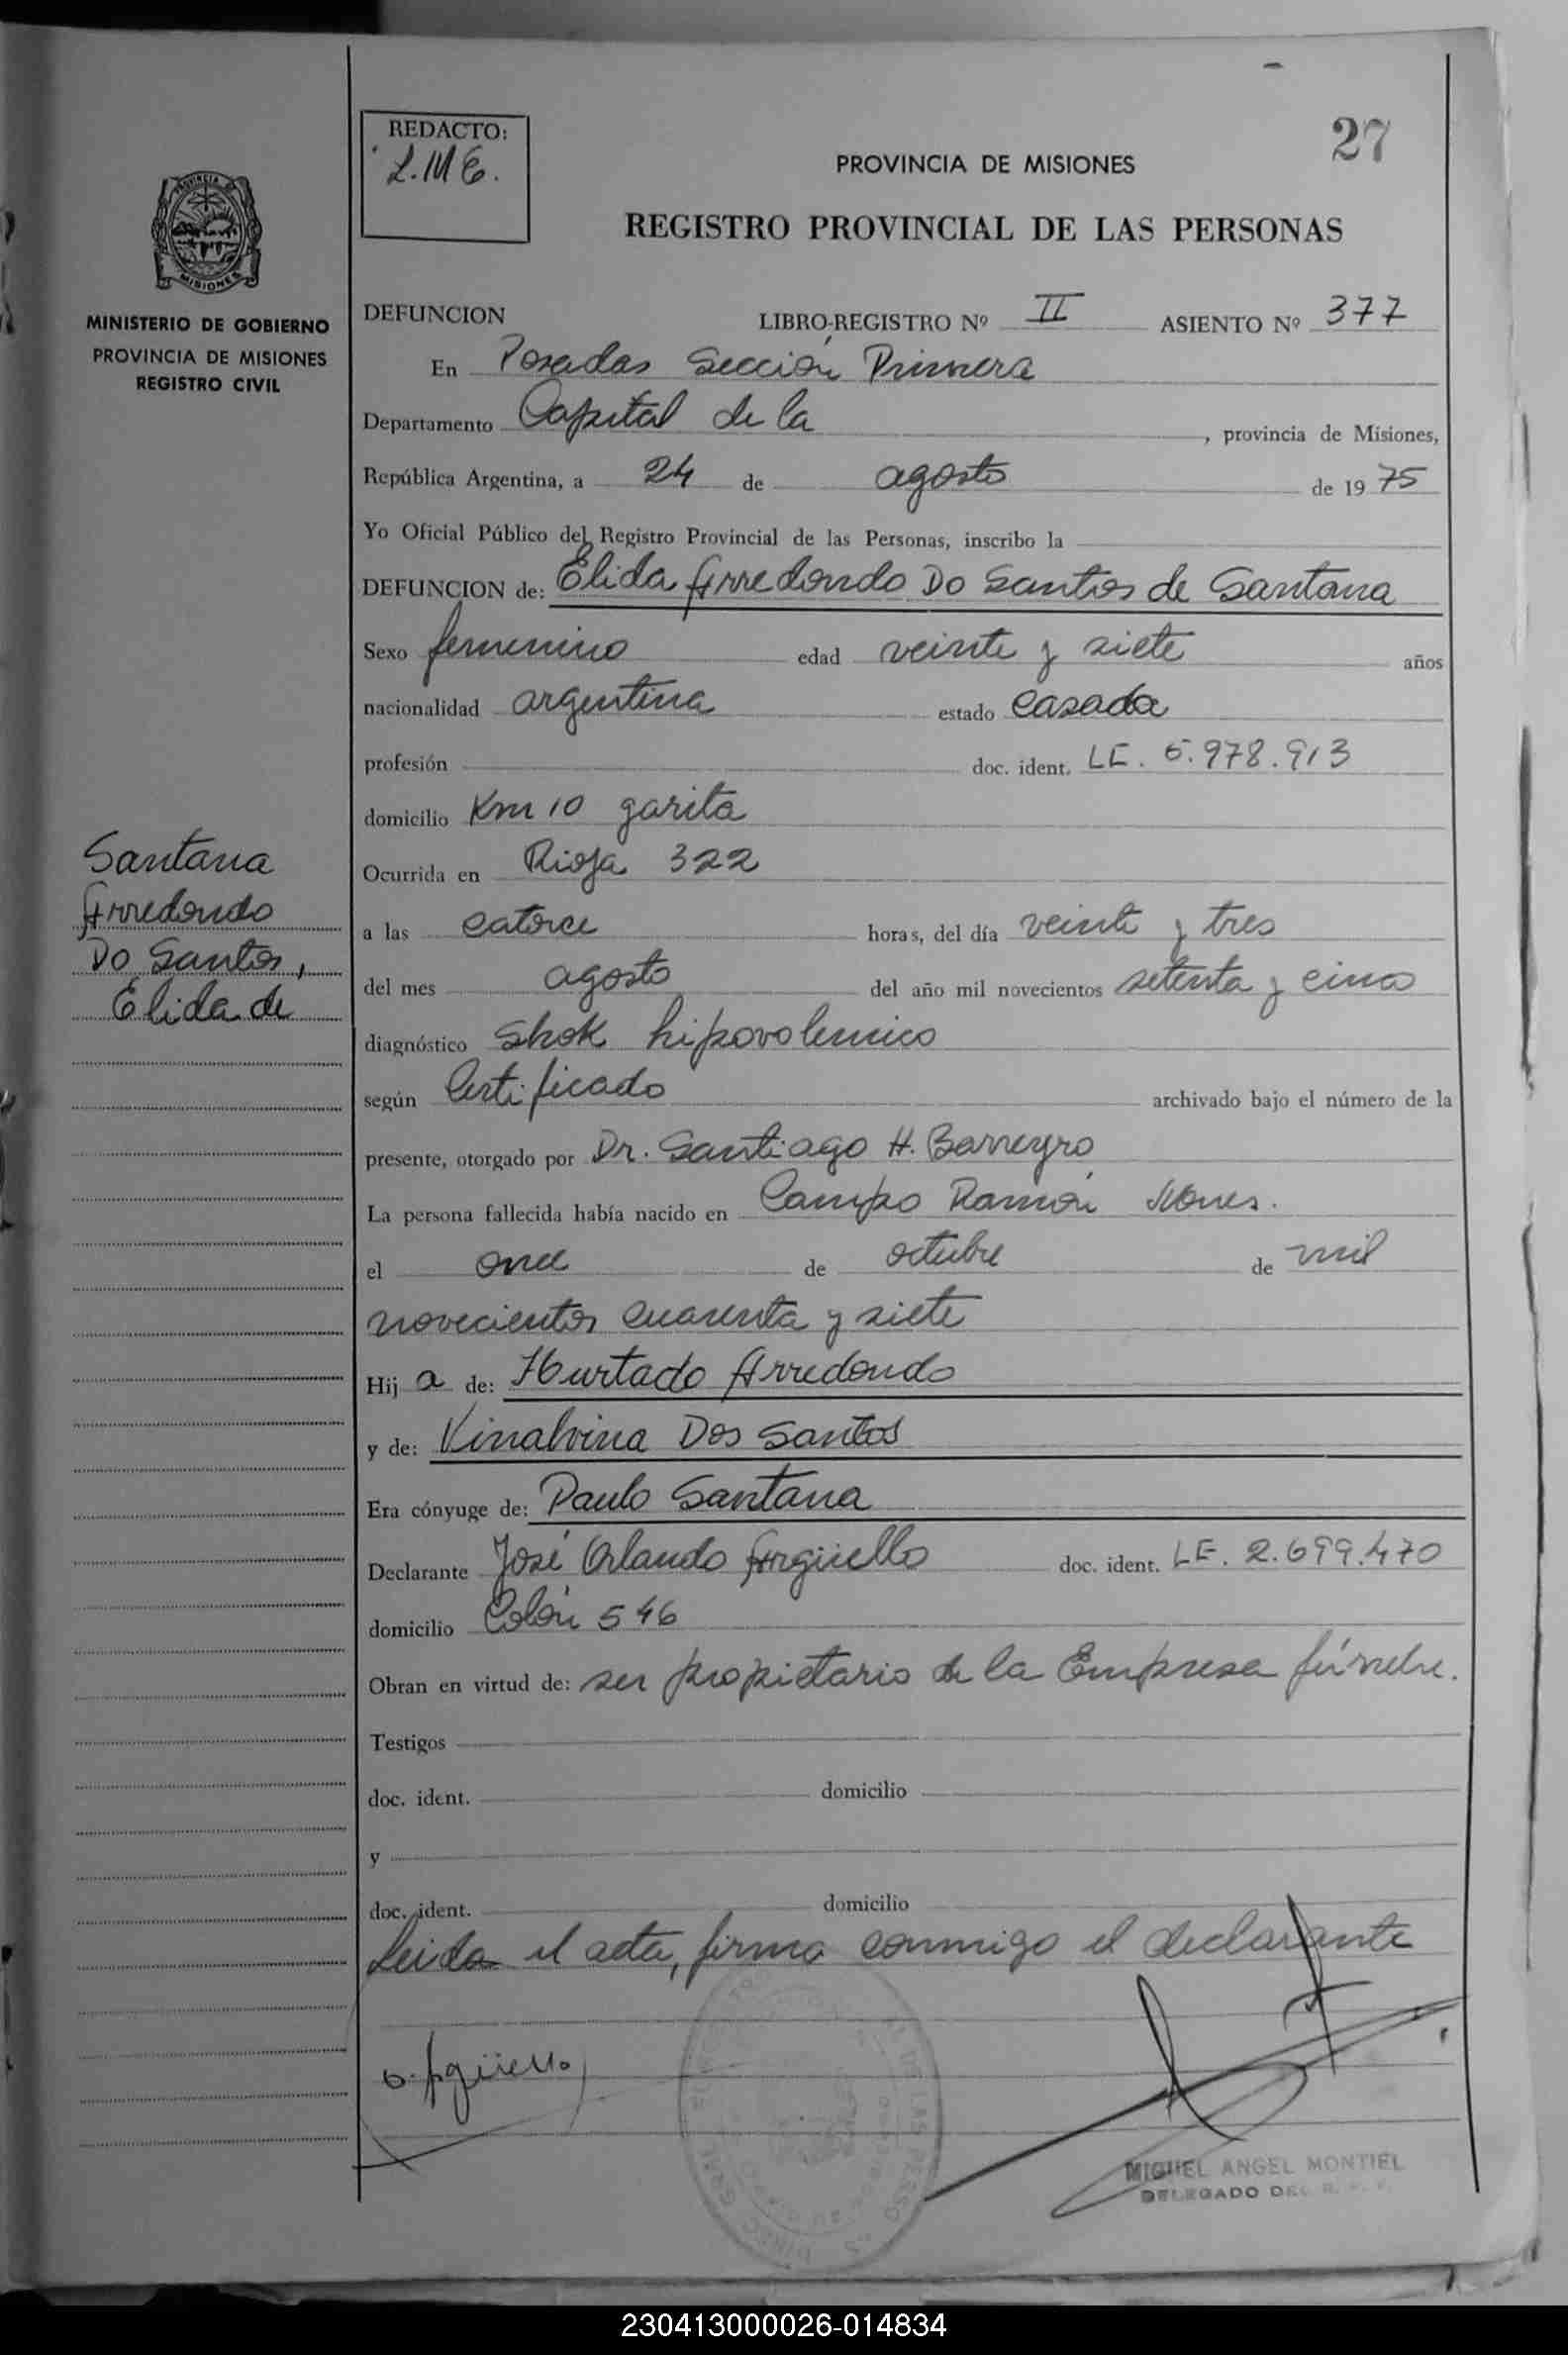 27
REDACTO:
L.M.E.
PROVINCIA DE MISIONES
REGISTRO PROVINCIAL DE LAS PERSONAS
MINISTERIO DE GOBIERNO
PROVINCIA DE MISIONES
REGISTRO CIVIL
Santana
Arredondo
Do Santos,
Élida de
DEFUNCION LIBRO-REGISTRO Nº II ASIENTO Nº 377
En Posadas Sección Primera
Departamento Capital de la , provincia de Misiones,
República Argentina, a 24 de agosto de 1975
Yo Oficial Público del Registro Provincial de las Personas, inscribo la
DEFUNCION de: Élida Arredondo Do Santos de Santana
Sexo femenino edad veinte y siete años
nacionalidad argentina estado casada
profesión doc. ident. LC. 5.978.913
domicilio Km 10 garita
Ocurrida en Rioja 322
a las catorce horas, del día veinte y tres
del mes agosto del año mil novecientos setenta y cinco
diagnóstico Shok hipovolemico
según Certificado archivado bajo el número de la
presente, otorgado por Dr. Santiago H. Barreyro
La persona fallecida había nacido en Campo Ramón Mnes.
el once de octubre de mil
novecientos cuarenta y siete
Hij a de: Hurtado Arredondo
y de: Vinalvina Dos Santos
Era cónyuge de: Paulo Santana
Declarante José Orlando Argüello doc. ident. LE. 2.699.470
domicilio Colón 546
Obran en virtud de: ser propietario de la Empresa fúnebre.
Testigos
doc. ident. domicilio
y
doc. ident. domicilio
Leida el acta, firma conmigo el declarante
O. Argüello
MIGUEL ANGEL MONTIEL
DELEGADO DEL R. P. P.
230413000026-014834